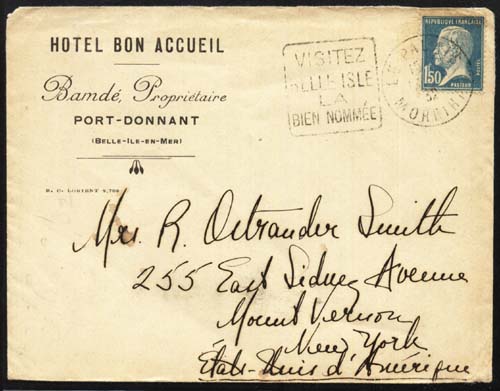 HOTEL BON ACCUEIL
Bamdé, Propriétaire
PORT-DONNANT
(BELLE-ILE-EN-MER)
R. C. LORIENT 9,700
VISITEZ
BELLE-ISLE
LA
BIEN NOMMÉE
LE PA
MORBIHAN
REPUBLIQUE FRANÇAISE
1f50
POSTES
PASTEUR
Mrs. R. Ostrander Smith
255 East Sidney Avenue
Mount Vernon
New York
États-Unis d'Amérique